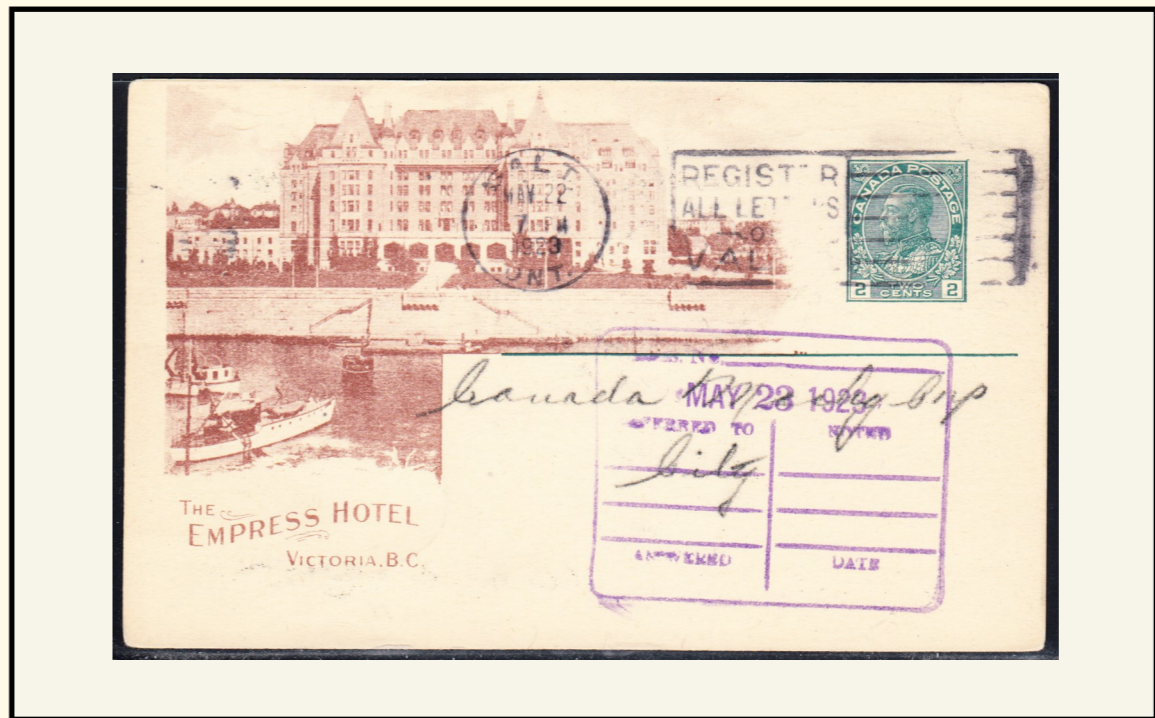 GALT
MAY 22
7 PM
1923
ONT.
REGISTER
ALL LETTERS
OF
VAL
CANADA POSTAGE
2 TWO CENTS 2
MAY 23 1923
Canada
City
REFERRED TO
NOTED
ANSWERED
DATE
THE
EMPRESS HOTEL
VICTORIA. B.C.